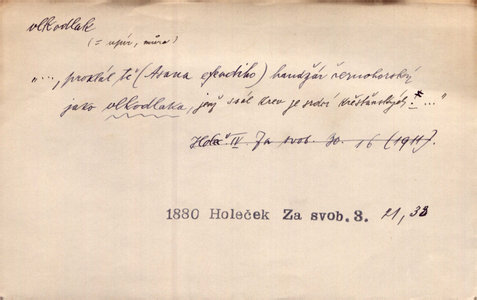 vlkodlak
(= upír, můra)
"..., proklál tě (Asana efendiho) handžár černohorský
jako vlkodlaka, jenž ssál krev ze srdcí křesťanských: * ..."
Hol. IV. Za svob. 30. 16 (1911).
1880 Holeček Za svob. 3. 21, 33